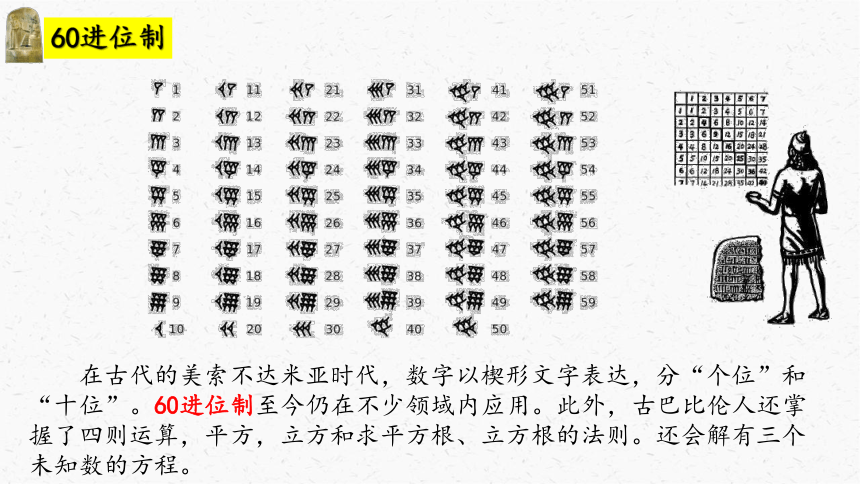 60进位制
1 11 21 31 41 51
2 12 22 32 42 52
3 13 23 33 43 53
4 14 24 34 44 54
5 15 25 35 45 55
6 16 26 36 46 56
7 17 27 37 47 57
8 18 28 38 48 58
9 19 29 39 49 59
10 20 30 40 50
1 2 3 4 5 6 7
1 1 2 3 4 5 6 7
2 2 4 6 8 10 12 14
3 3 6 9 12 15 18 21
4 4 8 12 16 20 24 28
5 5 10 15 20 25 30 35
6 6 12 18 24 30 36 42
7 7 14 21 28 35 42
在古代的美索不达米亚时代，数字以楔形文字表达，分“个位”和
“十位”。60进位制至今仍在不少领域内应用。此外，古巴比伦人还掌
握了四则运算，平方，立方和求平方根、立方根的法则。还会解有三个
未知数的方程。